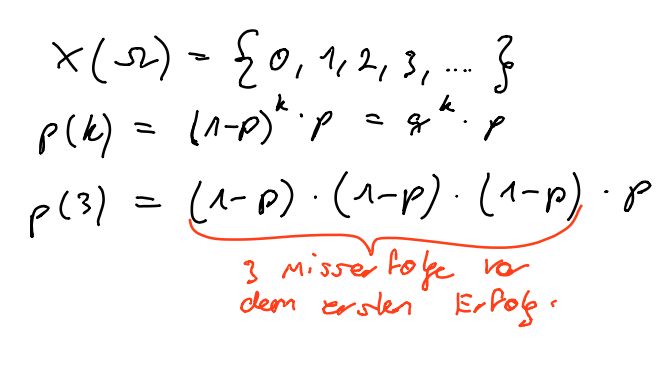 X(Ω) = {0, 1, 2, 3, ....}
p(k) = (1-p)^k · p = q^k · p
p(3) = (1-p) · (1-p) · (1-p) · p
3 Misserfolge vor
dem ersten Erfolg.